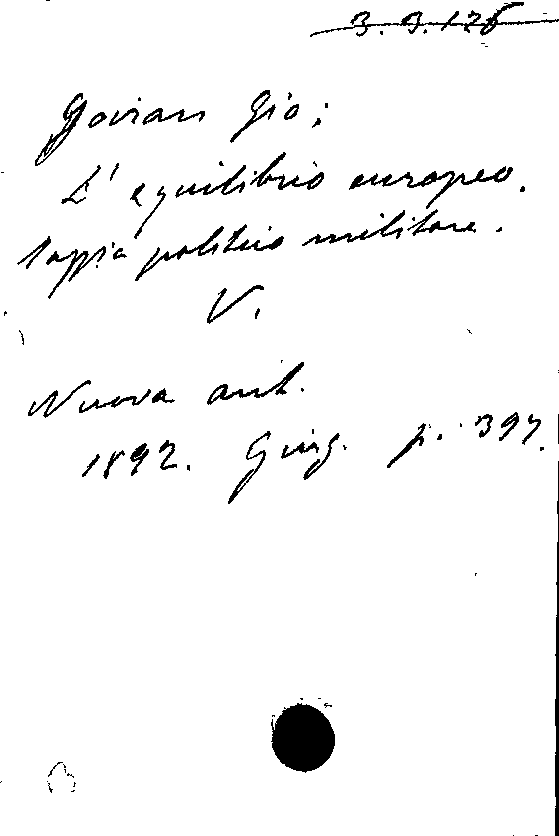 3.3.126
Goiran Gio;
L' equilibrio europeo.
politico militare.
V.
Nuova ant.
1892. Giug. p. 397.